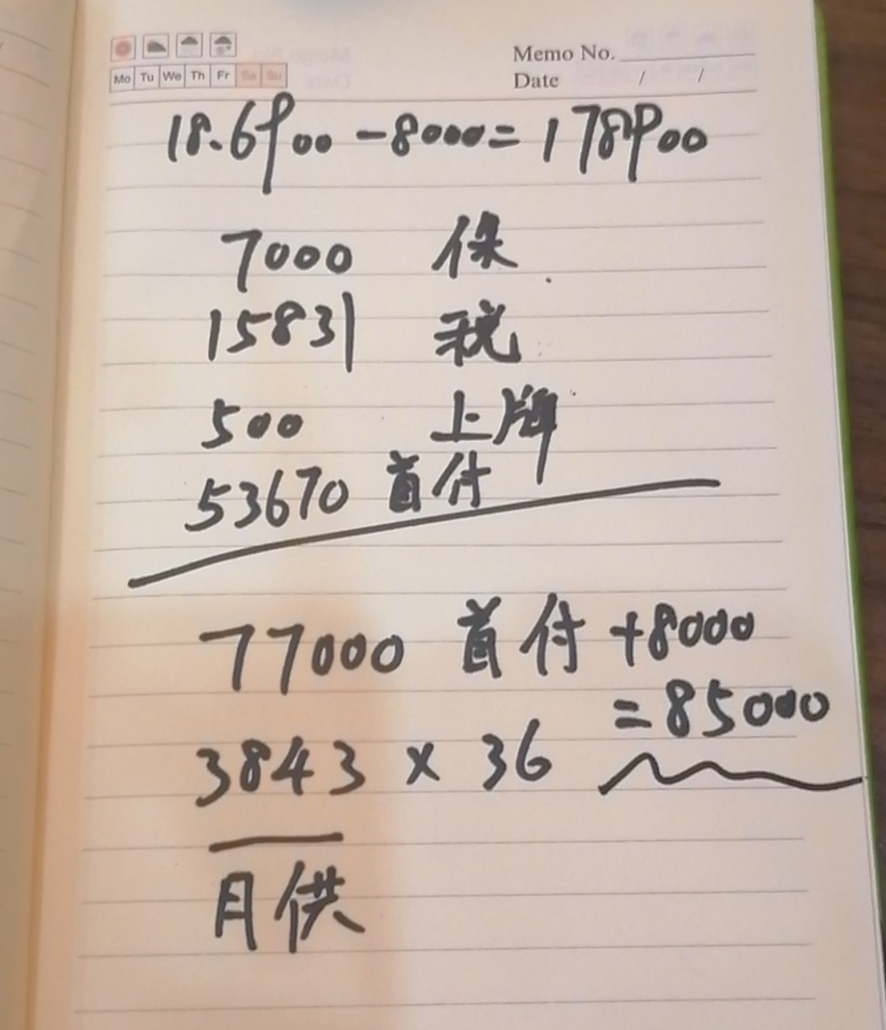 Memo No.
Mo Tu We Th Fr Sa Su
Date / /
18.6900-8000=178900
7000 保
15831 税
500 上牌
53670 首付
77000 首付+8000
=85000
3843×36
月供